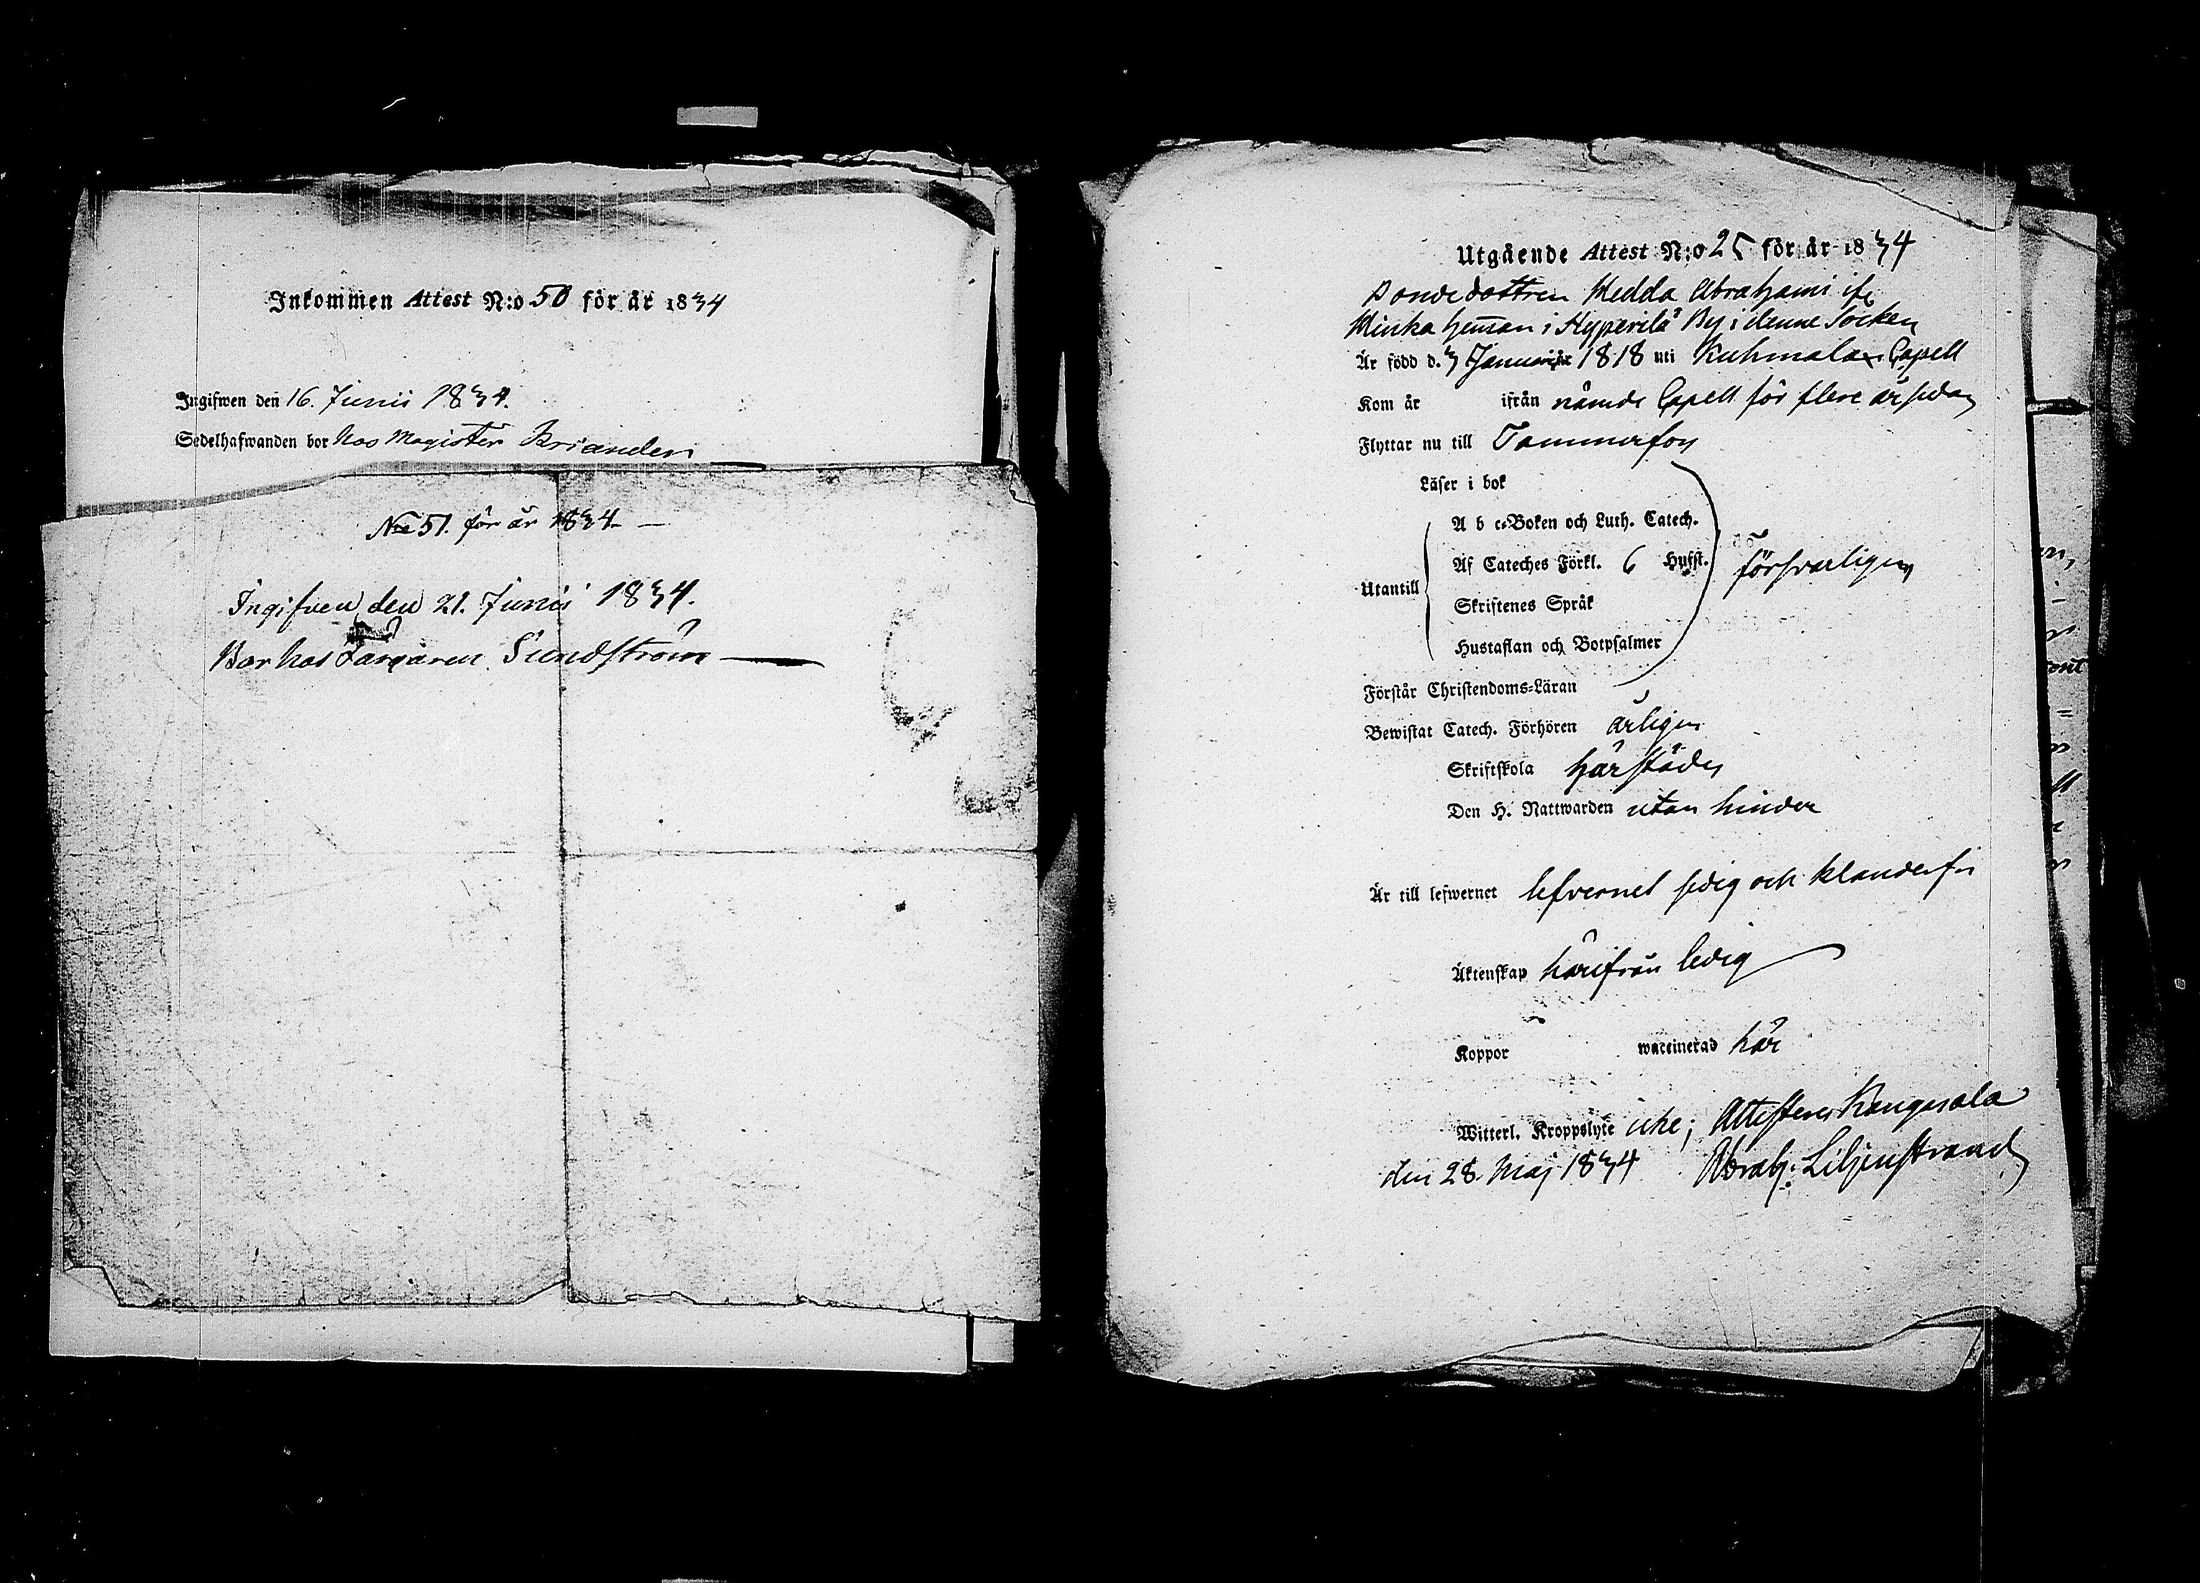 Inkommen Attest N:o 50 för år 1834
Ingifwen den 16. Junii 1834.
Sedelhafwanden bor hos Magister Brander
No 51. för år 1834
Ingifven den 21. Junii 1834.
Bor hos Färgaren Sundström
Utgående Attest N:o 25 för år 1834
Bondedottren Hedda Abrahami ifr.
Minka heman i Hyperilä By i denne Socken
Är född d. 3 Januari 1818 uti Kuhmala Capell
Kom år ifrån nämde Capell för flere år sedan
Flyttar nu till Tammerfors
Läser i bok
A b c-Boken och Luth. Catech.
Utantill Af Cateches Förkl. 6 Hufst. försvarligen
Skriftenes Språk
Hustaflan och Botpsalmer
Förstår Christendoms-Läran
Bewistat Catech. Förhören årligen
Skriftskola härstädes
Den H. Nattwarden utan hinder
Är till lefwernet lefvernet sedig och klanderfri
Äktenskap härifrån ledig
Koppor waccinerad här
Witterl. Kroppslyte icke; Attesteras Kangasala
den 28. Maj 1834 Abrah: Liljenstrand